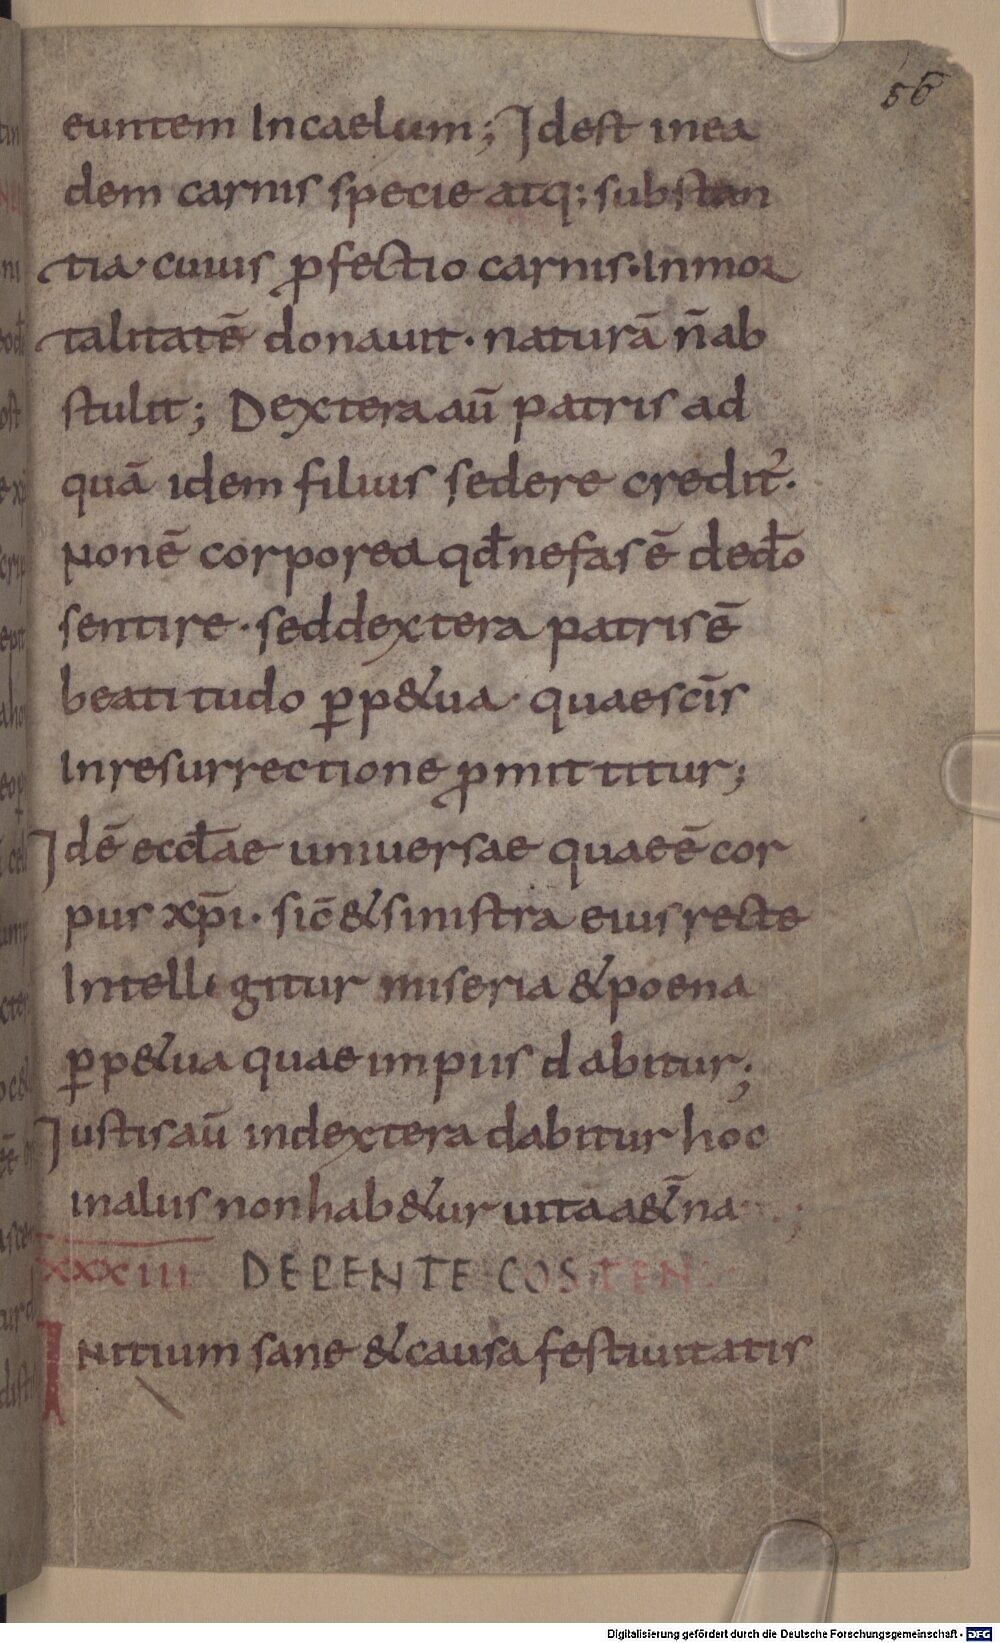 56
euntem Incaelum; Idest inea
dem carnis specie atq; substan
tia· cuius pfectio carnis· Inmor
talitatē donauit· naturā n̄ ab
stulit; Dextera aū patris ad
quā idem filius sedere credit᷑·
Non ē corporea qđ nefas ē de đo
sentire· sed dextera patris ē
beatitudo p̲p&ua· quae sc̄is
Inresurrectione pmittitur;
Idē eccƚae uniuersae quae ē cor
pus xp̄i· sic̄ & sinistra eius recte
Intelligitur miseria & poena
p̲p&ua quae impiis dabitur;
Iustis aū indextera dabitur hoc
inaliis non hab&ur uita a&̄na ;
XXXIII DE PENTECOSTEN
INitium sane & causa festiuitatis
Digitalisierung gefördert durch die Deutsche Forschungsgemeinschaft - DFG